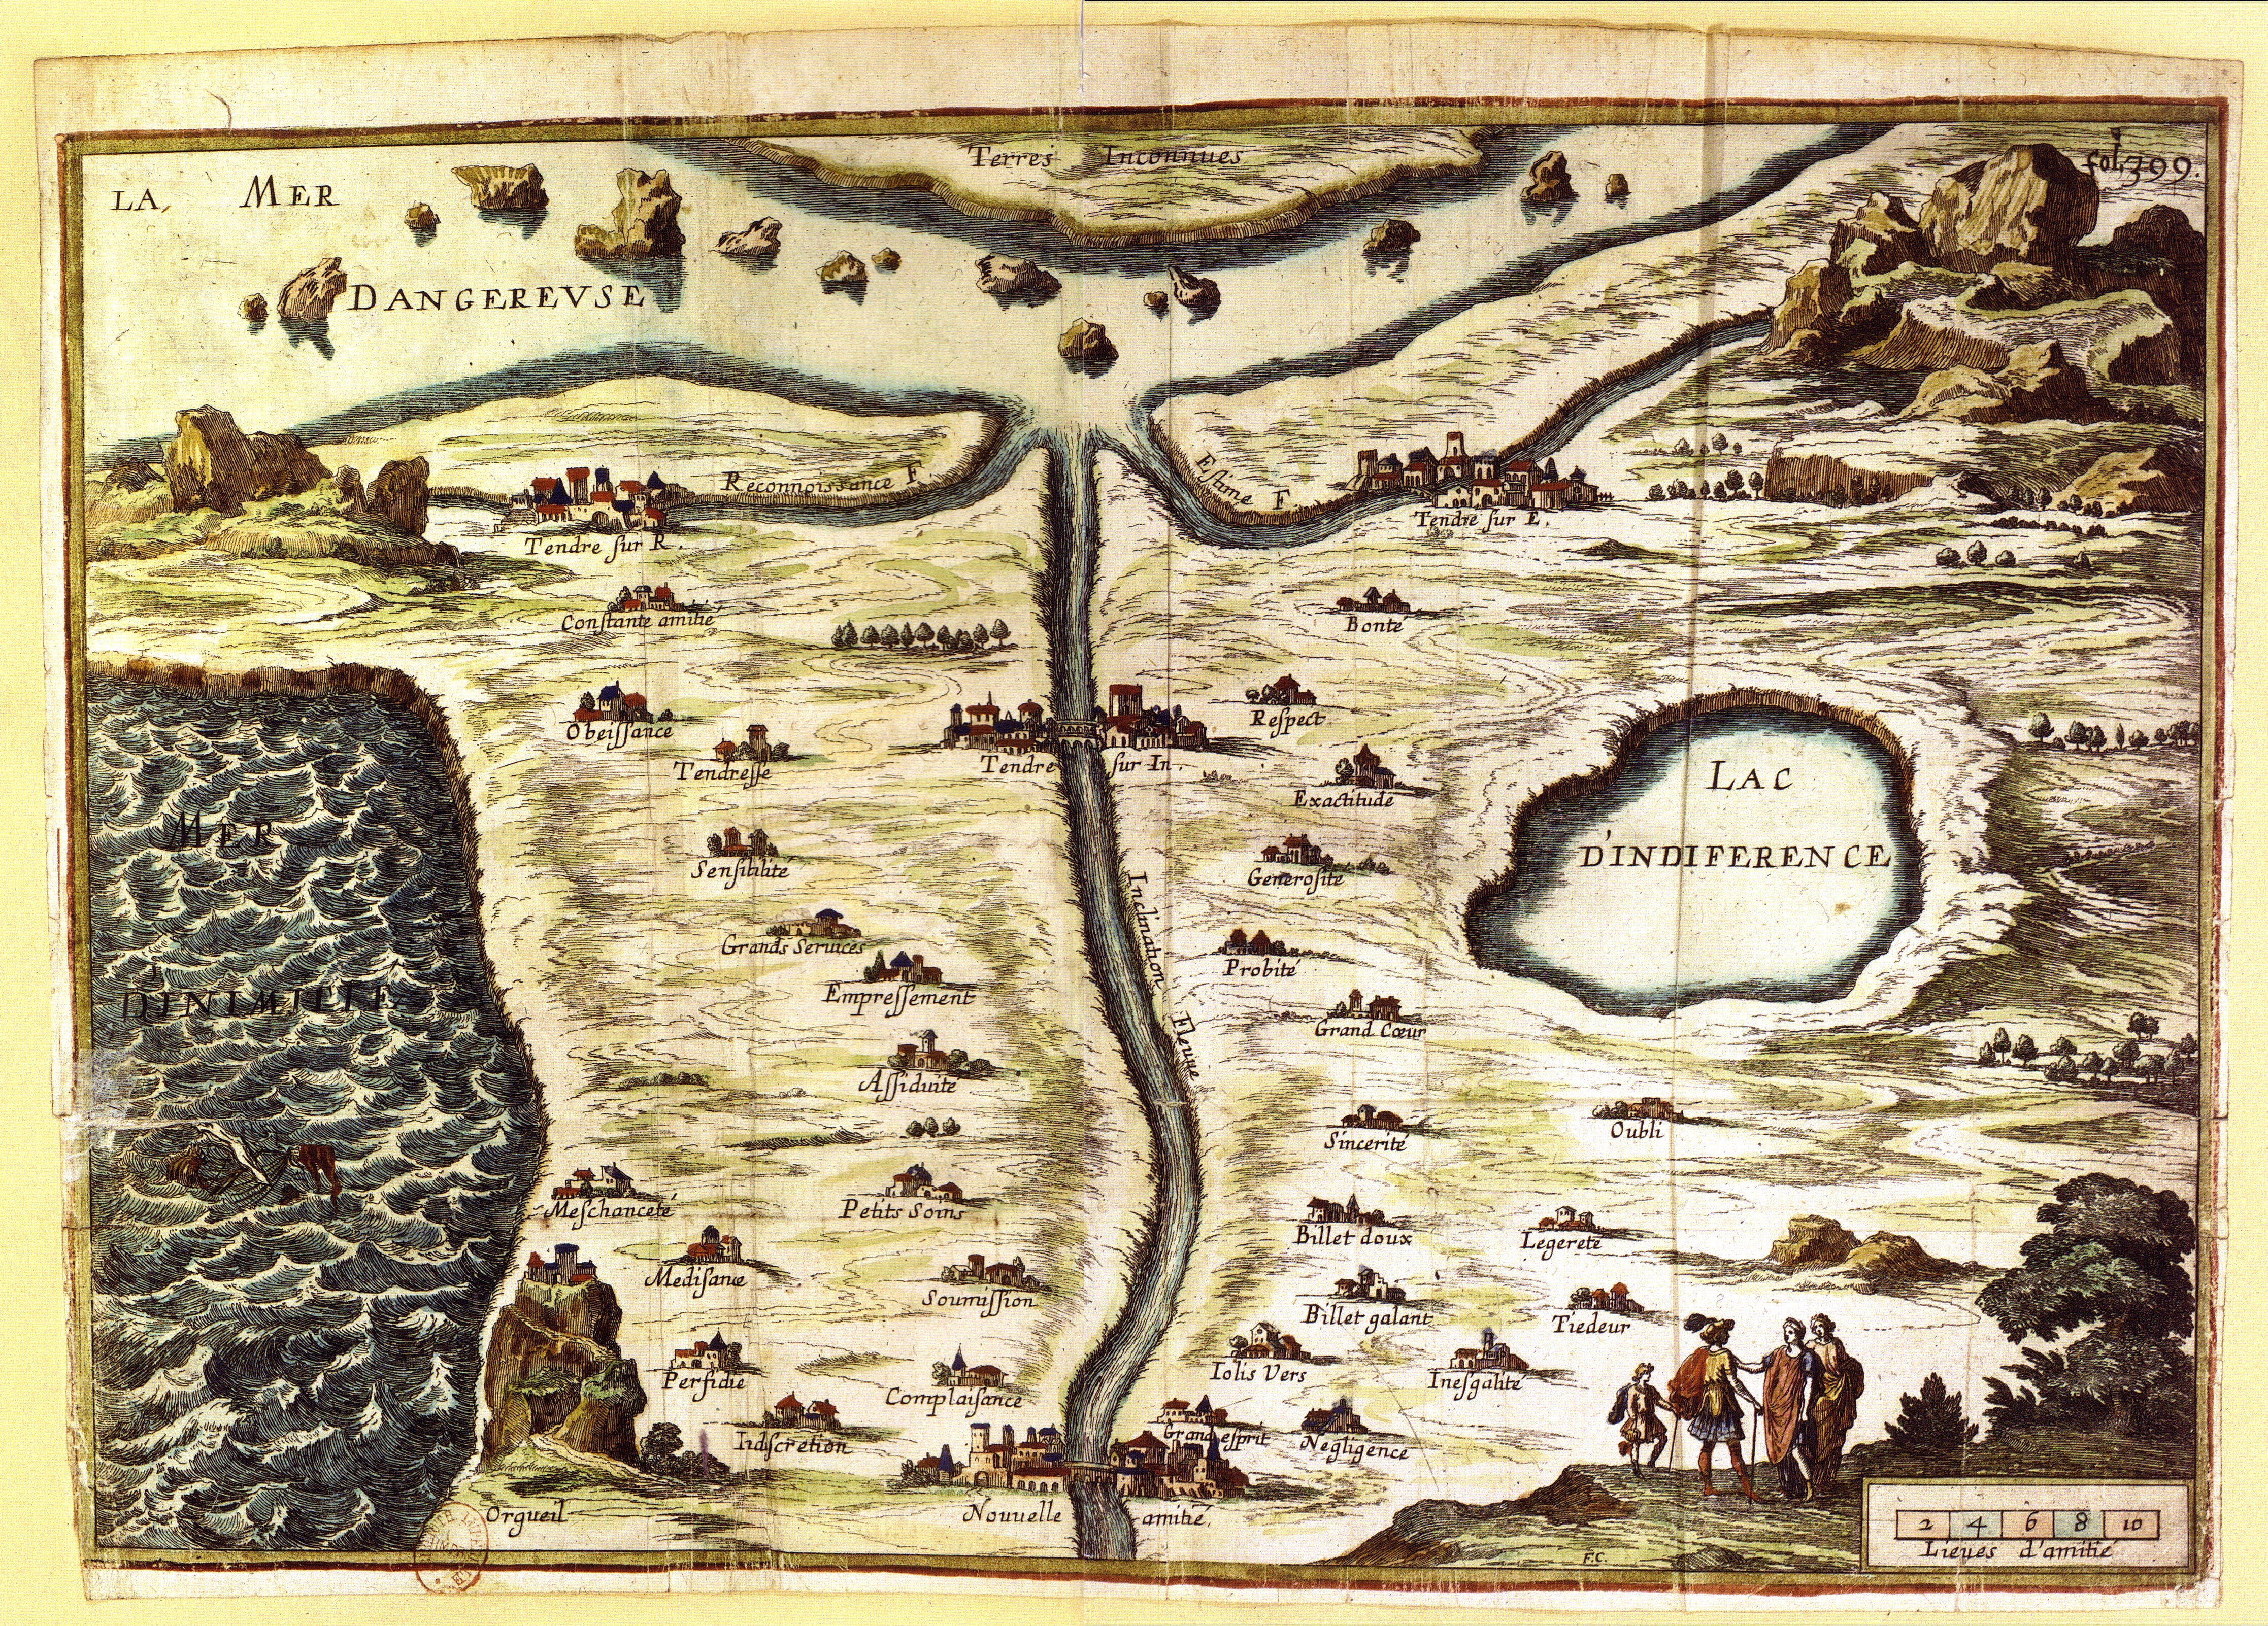 Terres Inconnues
fol. 399.
LA MER
DANGEREVSE
Reconnoissance F
Estime F.
Tendre sur R.
Tendre sur E.
Constante amitié
Bonté
Obeissance
Respect
Tendresse
Tendre sur In.
Exactitude
LAC
D'INDIFERENCE
MER
D'INIMITIE
Sensibilité
Generosité
Inclination Fleuve
Grands Services
Probité
Empressement
Grand Cœur
Assiduité
Sincerité
Oubli
Meschanceté
Petits Soins
Billet doux
Legereté
Medisance
Soumission
Billet galant
Tiedeur
Perfidie
Complaisance
Iolis Vers
Inesgalité
Indiscretion
Grand esprit
Negligence
Orgueil
Nouuelle amitié.
2 4 6 8 10
Lieues d'amitié
F.C.